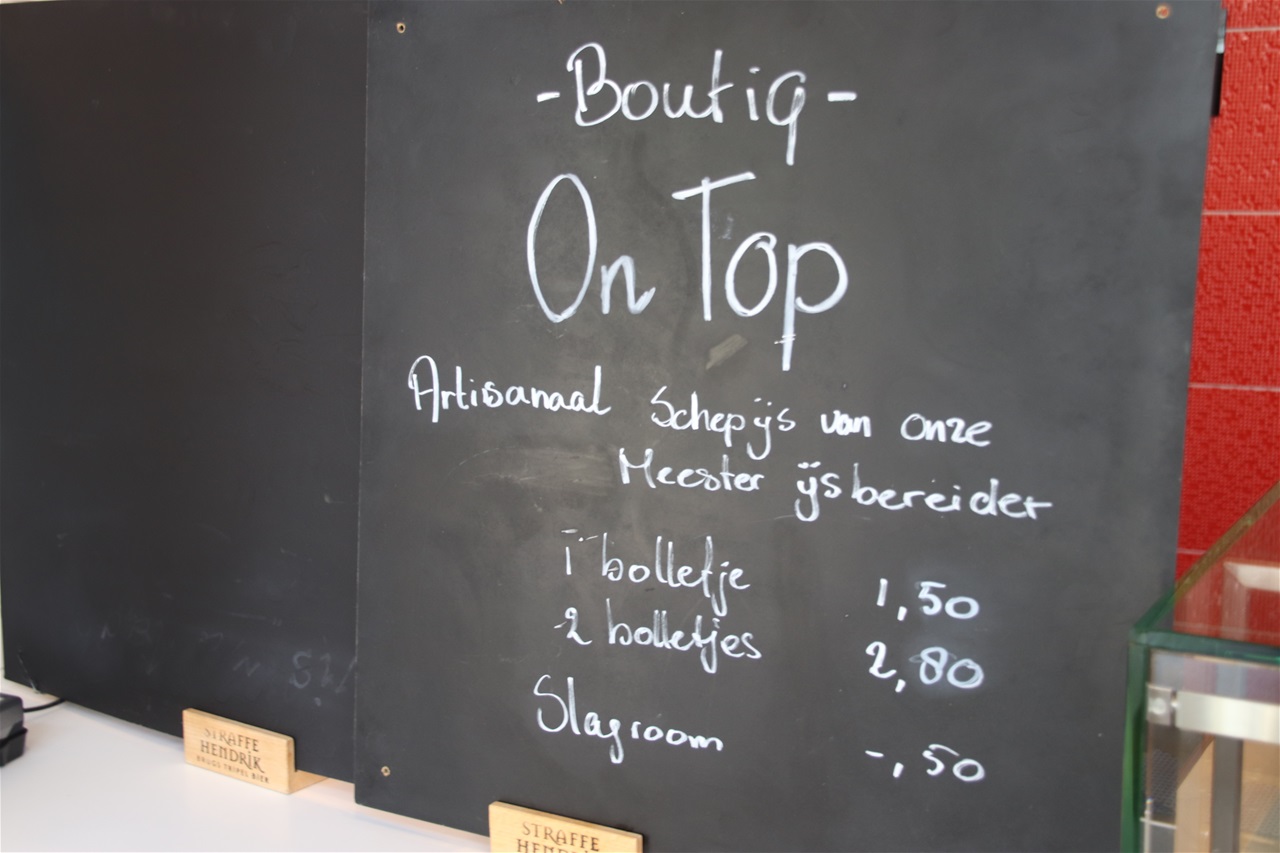 -Boutiq-
On Top
Artisanaal Schepijs van onze
Meester ijsbereider
1 bolletje 1,50
2 bolletjes 2,80
Slagroom -,50
STRAFFE
HENDRIK
BRUGS TRIPEL BIER
STRAFFE
HENDRIK